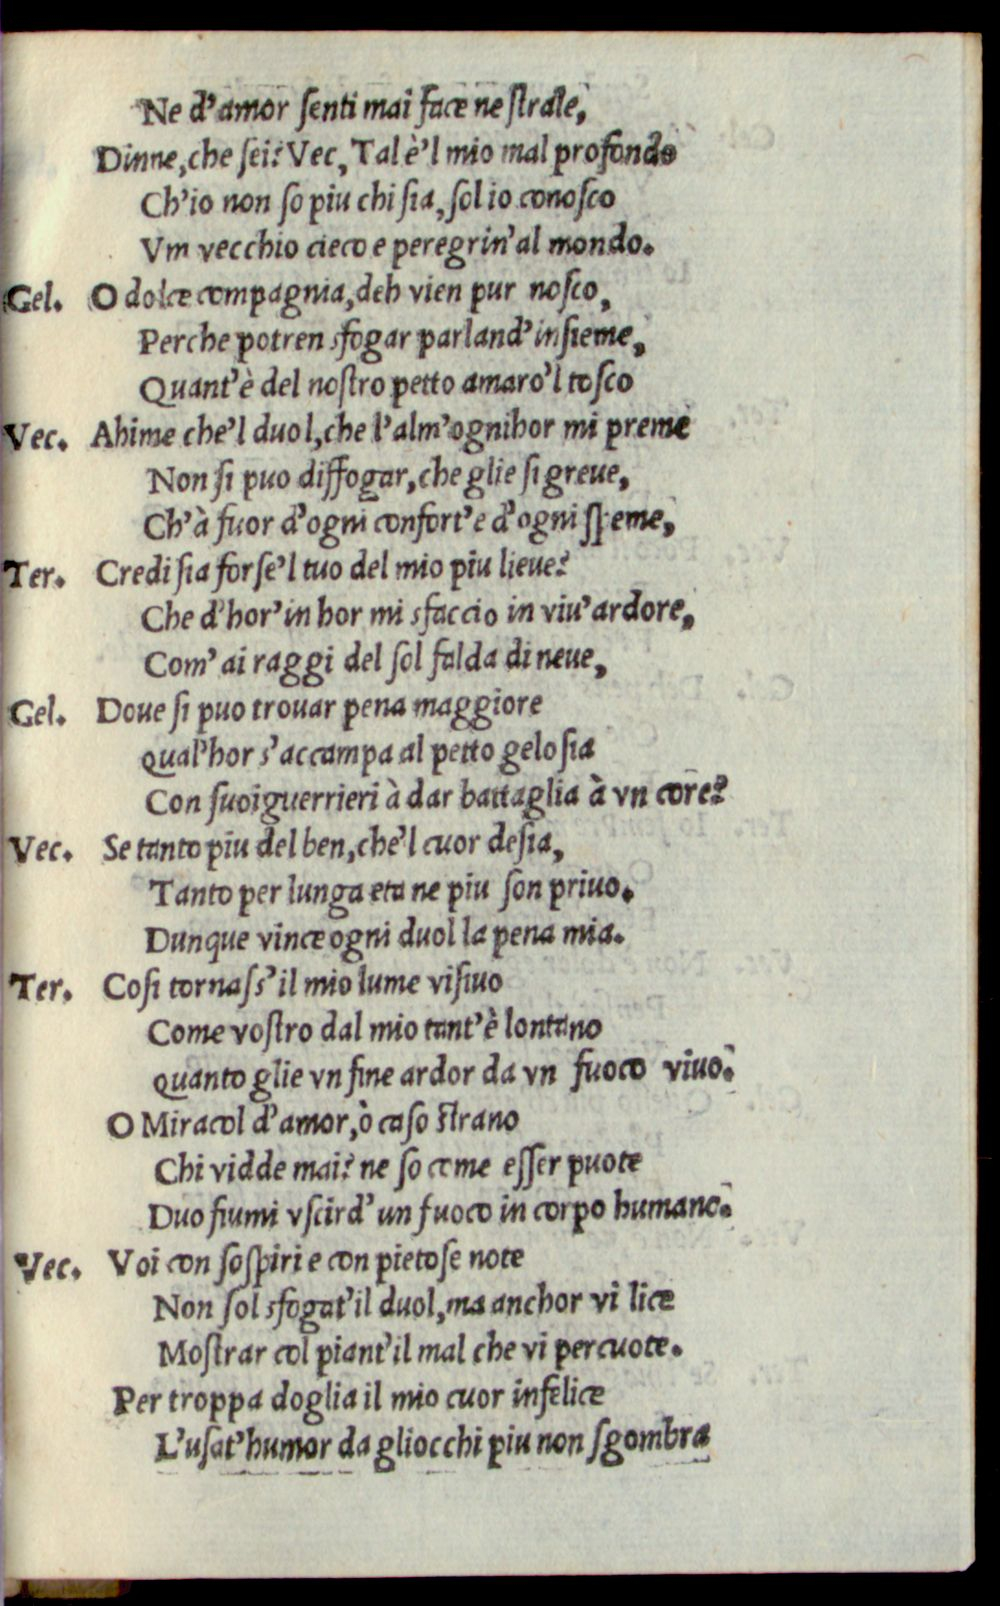 Ne d'amor ſenti mai face ne ſtrale,
Dinne, che ſei? Vec, Tal è'l mio mal profondo
Ch'io non ſo piu chi ſia, ſol io conoſco
Vm vecchio cieco e peregrin'al mondo.
Gel. O dolce compagnia, deh vien pur noſco,
Perche potren sfogar parland'inſieme,
Quant'è del noſtro petto amaro'l toſco
Vec. Ahime che'l duol, che l'alm'ognihor mi preme
Non ſi puo diffogar, che glie ſi greue,
Ch'à fuor d'ogni confort'e d'ogni ſpeme,
Ter. Credi ſia forſe'l tuo del mio piu lieue?
Che d'hor'in hor mi sfaccio in viu'ardore,
Com'ai raggi del ſol falda di neue,
Gel. Doue ſi puo trouar pena maggiore
qual'hor s'accampa al petto geloſia
Con ſuoi guerrieri à dar battaglia à vn core?
Vec. Se tanto piu del ben, che'l cuor deſia,
Tanto per lunga eta ne piu ſon priuo.
Dunque vince ogni duol la pena mia.
Ter. Coſi tornaſs'il mio lume viſiuo
Come voſtro dal mio tant'è lontano
quanto glie vn fine ardor da vn fuoco viuo.
O Miracol d'amor, ò caſo ſtrano
Chi vidde mai? ne ſo come eſſer puote
Duo fiumi vſcir d'un fuoco in corpo humano.
Vec. Voi con soſpiri e con pietoſe note
Non ſol sfogat'il duol, ma anchor vi lice
Moſtrar col piant'il mal che vi percuote.
Per troppa doglia il mio cuor infelice
L'uſat'humor da gliocchi piu non ſgombra